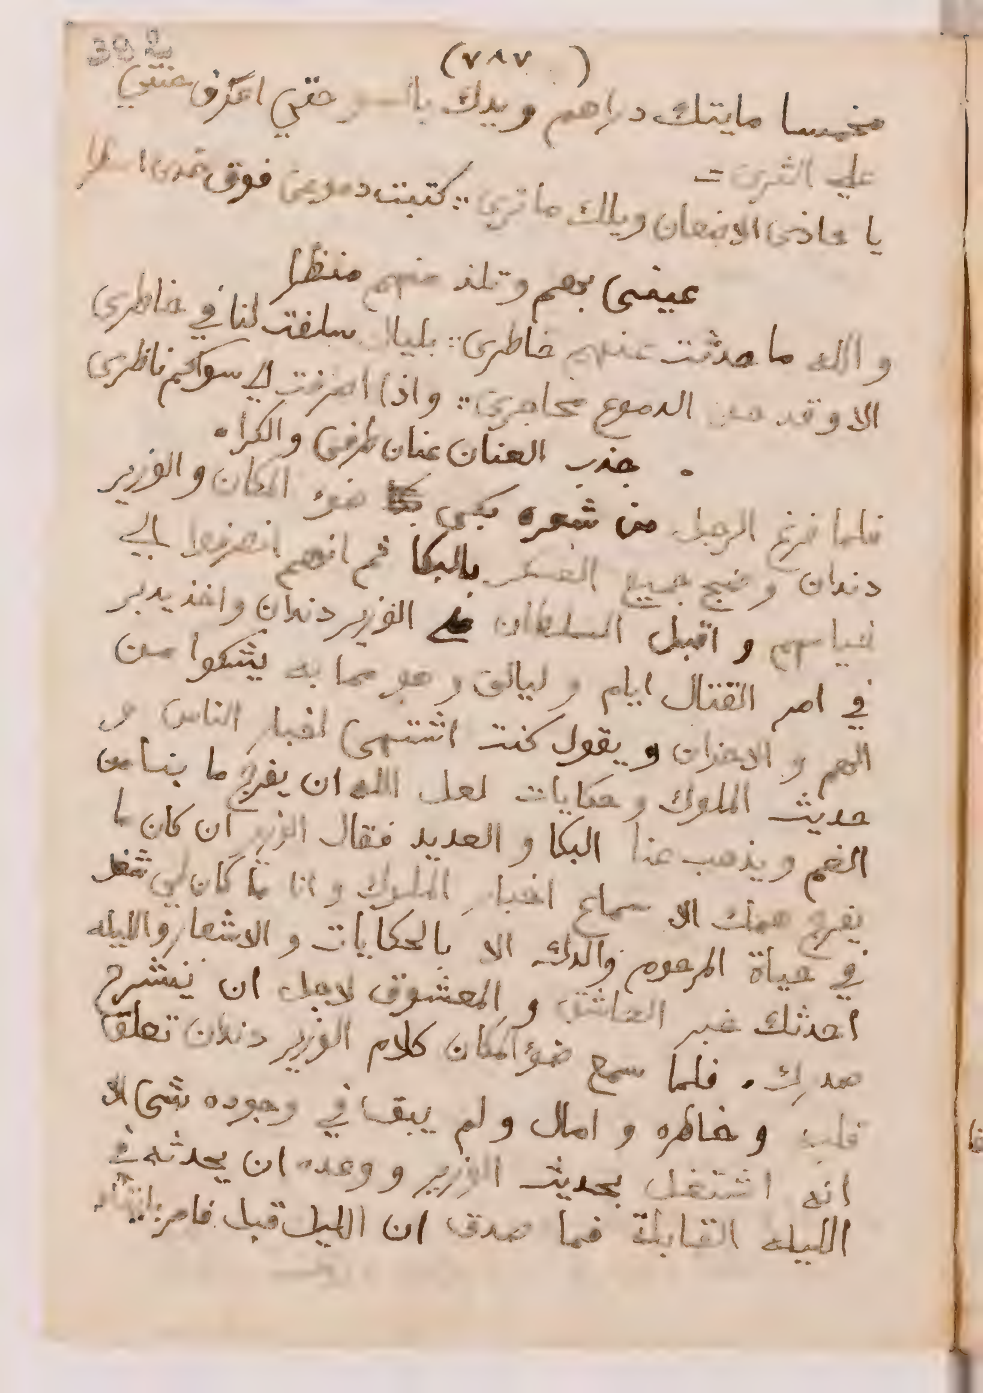 (٧٨٧)
مخمسا مايتك دراهم ويدك حتي اعترف عنقي
علي الثرى =
يا حاذى الاضعان ويلك ما ترى :: كتبت دموعى فوق خدى اسطرا
عينى بهم وتلذ منهم منظرا
و الله ما حدثت عنهم خاطرى :: بليال سلفت لنا في خاطرى
الا وقد الدموع محاجرى :: واذا اصرفت الى سواكم ناظرى
. جذب العنان عنان طرفى والكرا .
فلما فرغ الرجل من شعره بكى ضوء المكان والوزير
دندان وضج جميع العسكر بالبكا ثم انهم انصرفوا الي
خيامهم و اقبل السلطان على الوزير دندان واخذ يدبر
في امر القتال ايام و ليالى وهو مما به يشكوا من
الهم و الاحزان ويقول كنت اشتهى اخبار الناس و
حديث الملوك و حكايات لعل الله ان يفرج ما بنا من
الغم ويذهب عنا البكا و العديد فقال الوزير ان كان ما
يفرج همك الا سماع اخبار الملوك و انا ما كان لي شغل
في حياة المرحوم والدك الا بالحكايات و الاشعار والليله
احدثك خبر العاشق و المعشوق لاجل ان ينشرح
صدرك . فلما سمع ضوء المكان كلام الوزير دندان تعلق
قلبه و خاطره و امال ولم يبقا في وجوده شى الا
انه اشتغل بحديث الوزير و وعده ان يحدثه في
الليله القابلة فما صدق ان الليل قبل فامر